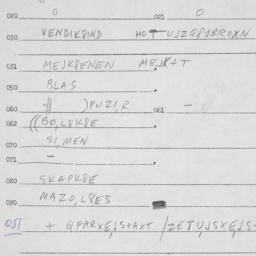 020 0 021 0
030 VENDIK8IND HOTUJZG818ROXN
031 MEJK8ENEN MEJK+T
050 BLAS
060 )PUZI,R 061 -
062 ((BO,L8IK8E
070 SI,MEN
071 -
080 SKAPK8E
090 MAZO,L8ES
051 + QFARXE,S+AXT /ZETU,JSXE,S+